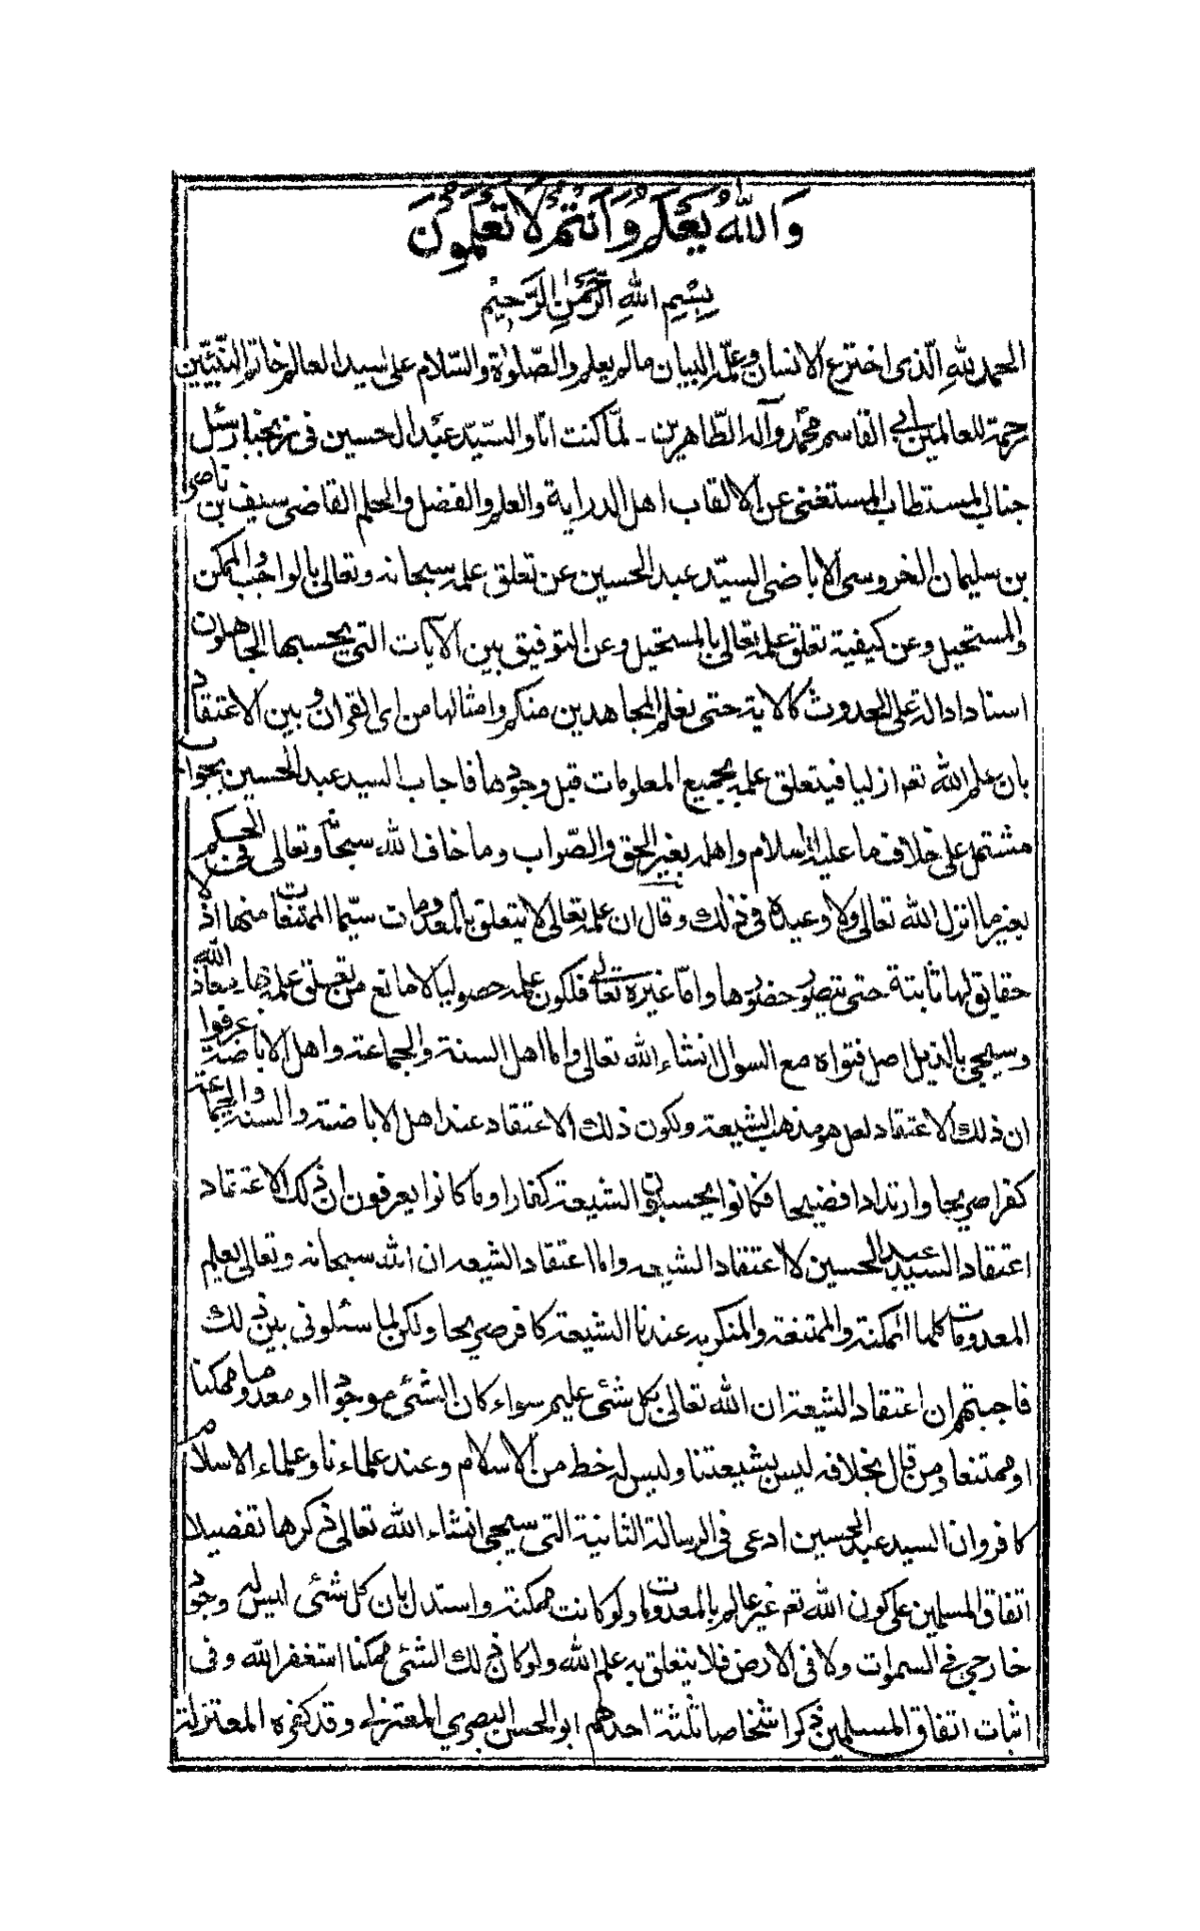 وَاللّٰهُ يَعْلَمُ وَاَنْتُمْ لَا تَعْلَمُوْنَ
بِسْمِ اللّٰهِ الرَّحْمٰنِ الرَّحِيْمِ
الحمد للّٰهِ الّذى اخترع الانسان وعلّمه البيان مالم يعلم والصّلوٰة والسّلام على سيد العالم خاتم النّبيّين
رحمة للعالمين ابى القاسم محمّد وآله الطّاهرين ـ لمّا كنت انا والسّيّد عبد الحسين فى زنجبار سئل
جناب المستطاب المستغنى عن الالقاب اهل الدراية والعلم والفضل والحلم القاضى سيف بن ناصر
بن سليمان الخروسى الاباضى السيّد عبد الحسين عن تعلق علمه سبحانه وتعالى بالواجب والممكن
والمستحيل وعن كيفية تعلق علمه تعالى بالمستحيل وعن التوفيق بين الآيات التى يحسبها الجاهلون
اسنادا دالة على الحدوث كالاية حتى نعلم المجاهدين منكم وامثالها من اى القران وبين الاعتقاد
بان علم اللّٰه تعم ازليا فيتعلق علمه بجميع المعلومات قبل وجودها فاجاب السيد عبد الحسين بجواب
مشتمل على خلاف ما عليه الاسلام واهله بغير الحق والصّواب وما خاف اللّٰه سبحانه وتعالى فى الحكم
بغير ما انزل اللّٰه تعالى ولا وعيده فى ذلك وقال ان علمه تعالى لا يتعلق بالمعدومات سيّما الممتنعات منها اذ لا
حقايق لها ثابتة حتى يتصور حضورها وامّا غيره تعالى فلكون علمه حصوليا لا مانع من تعلق علمه بها معاذ اللّٰه
وسيجى بالذيل اصل فتواه مع السوال انشاء اللّٰه تعالى واما اهل السنة والجماعة واهل الاباضة عرفوا
ان ذلك الاعتقاد لعل هو مذهب الشيعة ولكون ذلك الاعتقاد عند اهل الاباضة والسنة والجماعة
كفرا صريحا وارتدادا فضيحا فكانوا يحسبون الشيعة كفارا وما كانوا يعرفون ان ذلك الاعتقاد
اعتقاد السيد عبد الحسين لا اعتقاد الشيعه واما اعتقاد الشيعه ان اللّٰه سبحانه وتعالى يعلم
المعدومات كلها الممكنة والممتنعة والمنكر به عندنا الشيعة كافر صريحا ولكن لما سئلونى بين ذلك
فاجبتهم ان اعتقاد الشيعة ان اللّٰه تعالى بكل شئ عليم سواء كان الشئ موجودا او معدوما ممكنا
او ممتنعا ومن قال بخلافه ليس بشيعتنا وليس له خط من الاسلام وعند علماءنا وعلماء الاسلام
كافر وان السيد عبد الحسين ادعى فى الرسالة الثانية التى سيجى انشاء اللّٰه تعالى ذكرها تفصيلا
اتفاق المسلمين على كون اللّٰه تعم غير عالم بالمعدومات ولو كانت ممكنة واستدل بان كل شئ ليس له وجود
خارجى فى السموات ولا فى الارض فلا يتعلق به علم اللّٰه ولو كان ذلك الشئ ممكنا استغفر اللّٰه وفى
اثبات اتفاق المسلمين ذكر اشخاصا ثلثة احدهم ابو الحسن البصري المعتزلى وقد كفره المعتزلة